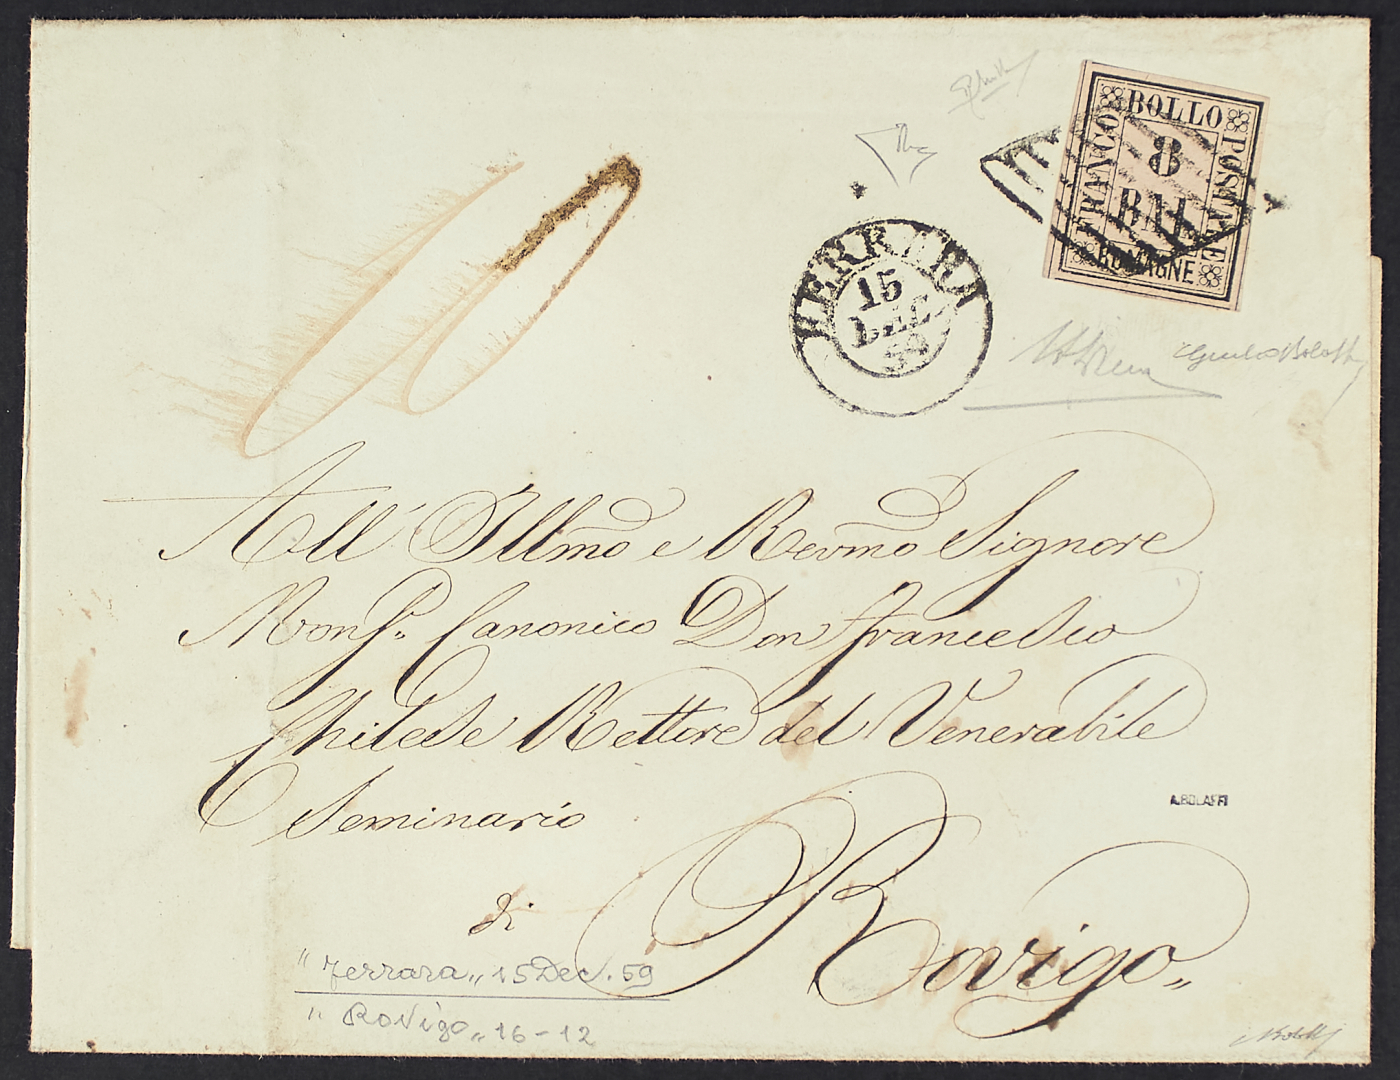 10
BOLLO
FRANCO
POSTALE
8
BAJ
ROMAGNE
FERRARA
15
DEC.
59
All' Illmo e Revmo Signore
Monsr. Canonico Don Francesco
Rettore del Venerabile
Seminario
A.BOLAFFI
di
Rovigo„
"Ferrara„ 15 Dec. 59
" Rovigo„ 16-12